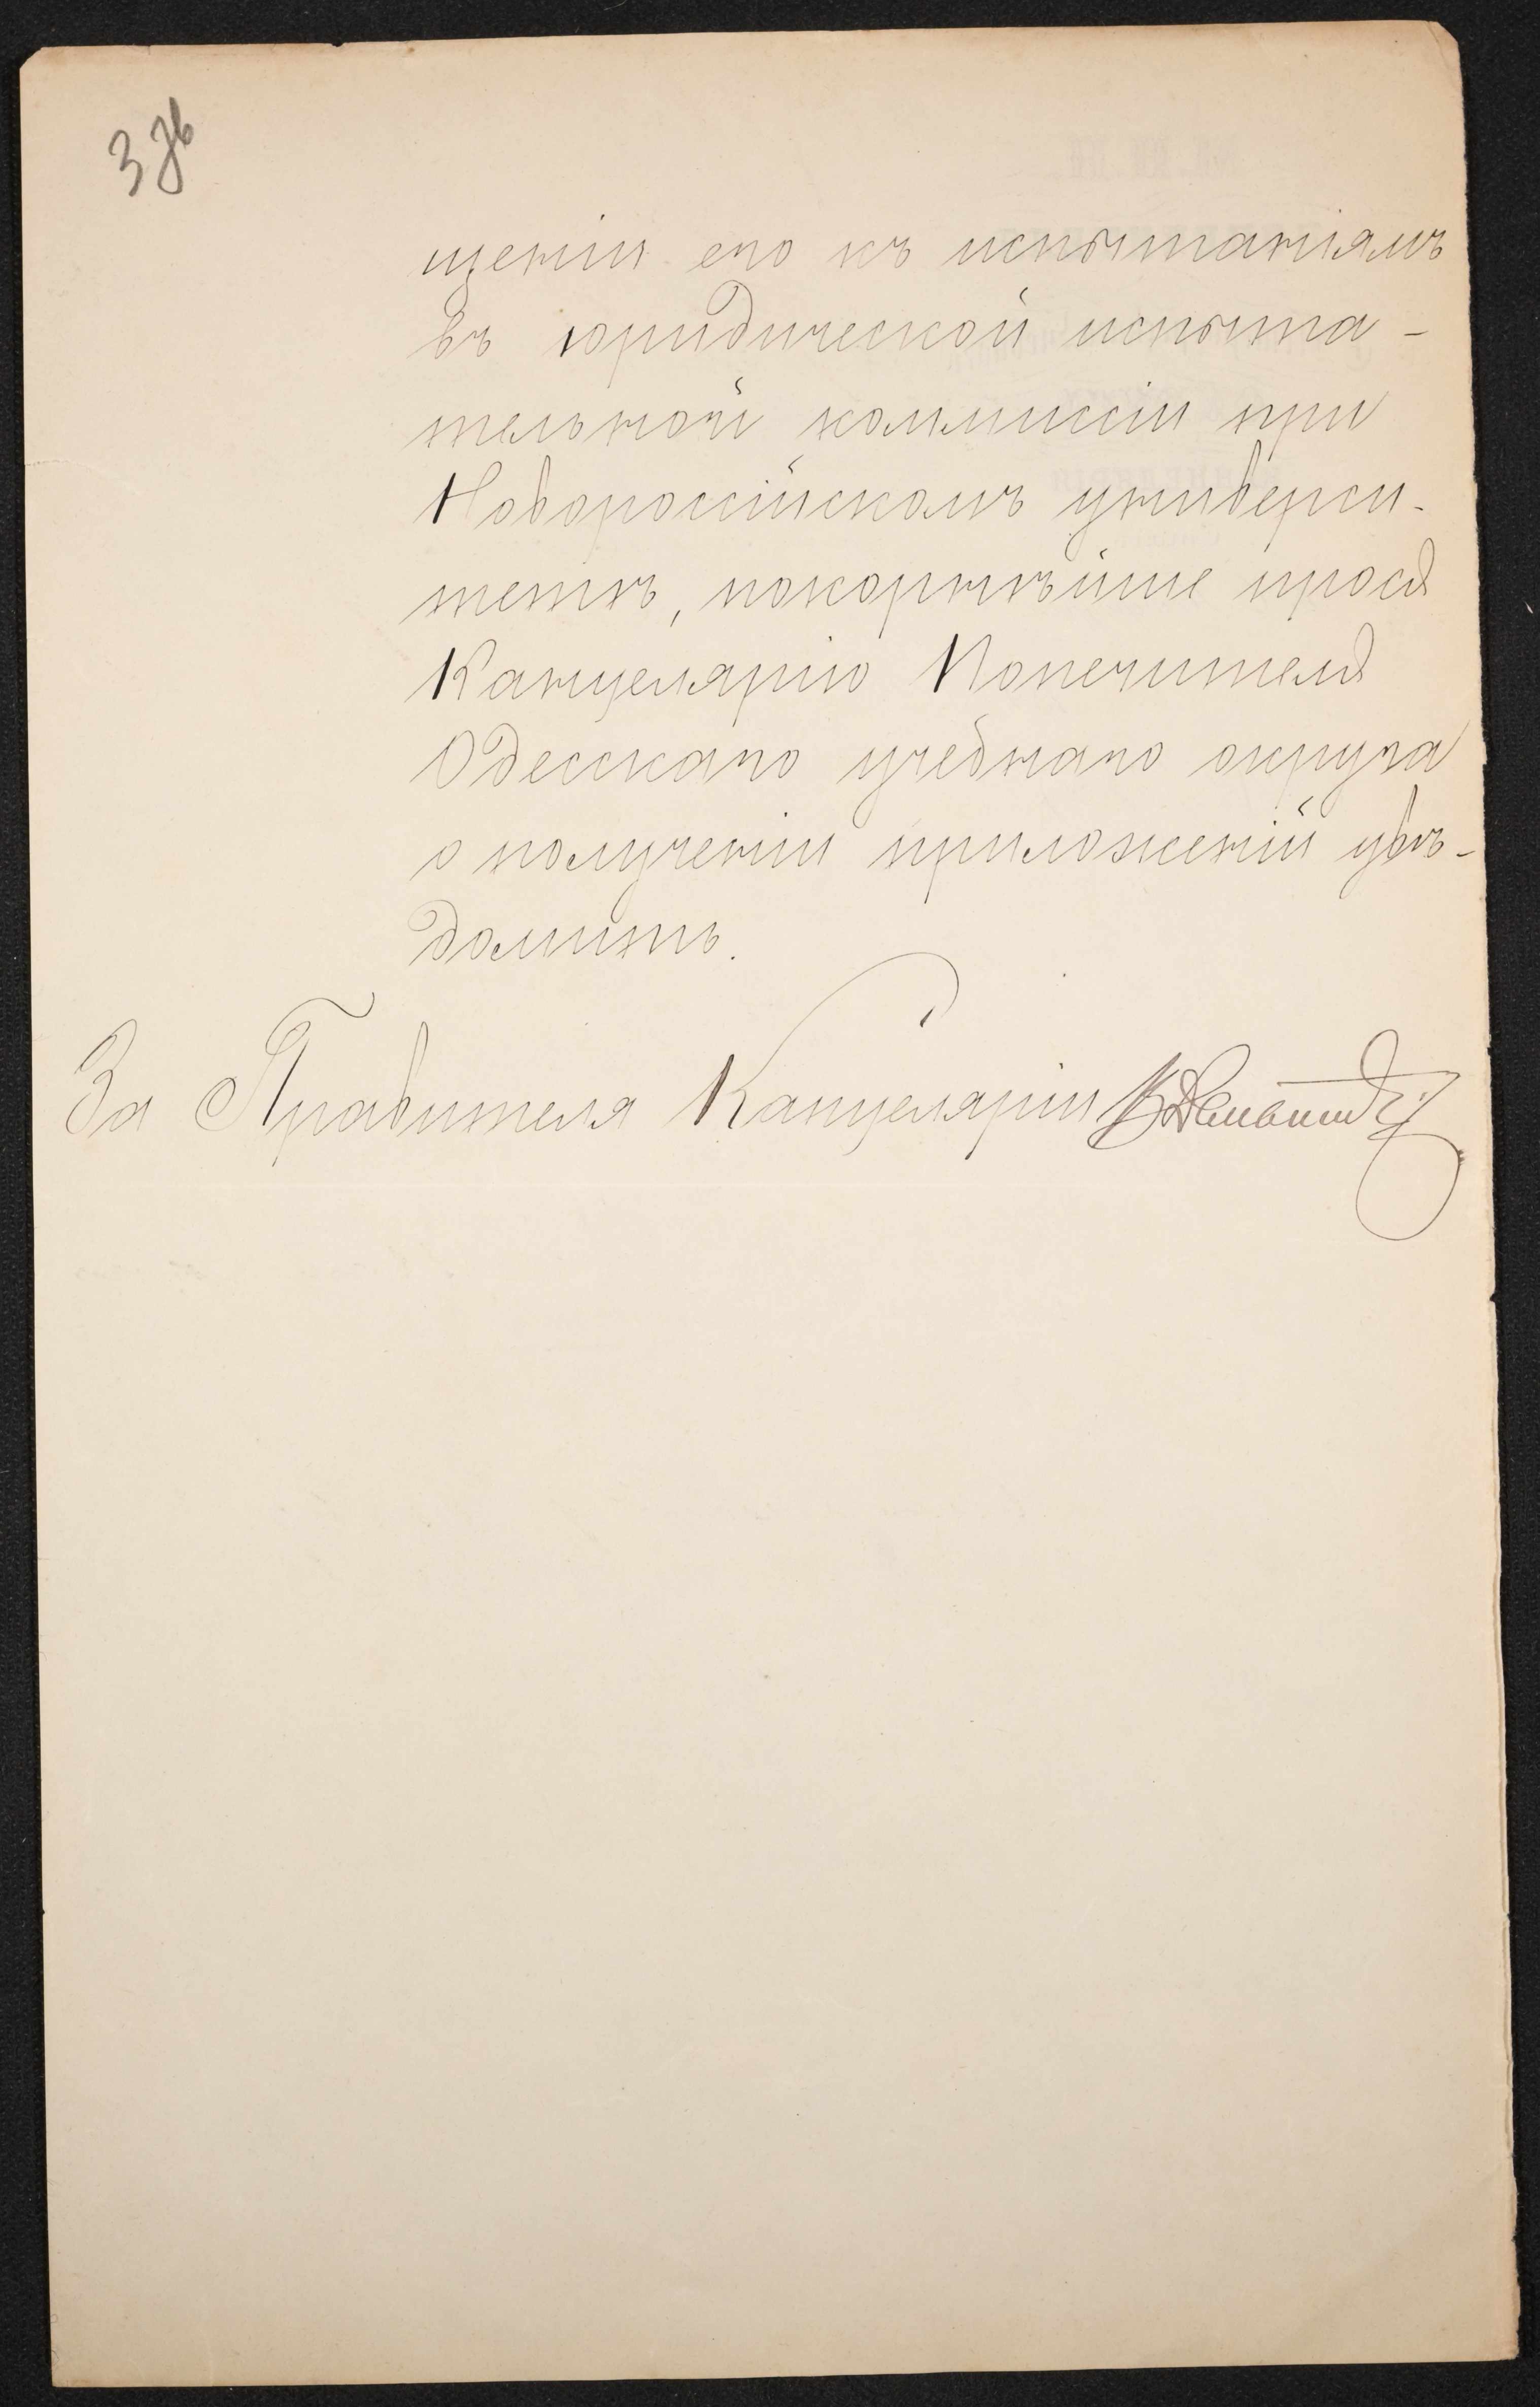 3 зв
щенiи его къ испытанiямъ
въ юридической испыта-
тельной коммиссiи при
Новороссiйскомъ универси-
тетѣ, покорнѣйше прося
Канцелярiю Попечителя
Одесскаго учебнаго округа
о полученiи приложенiй увѣ-
домить.
За Правителя Канцелярiи